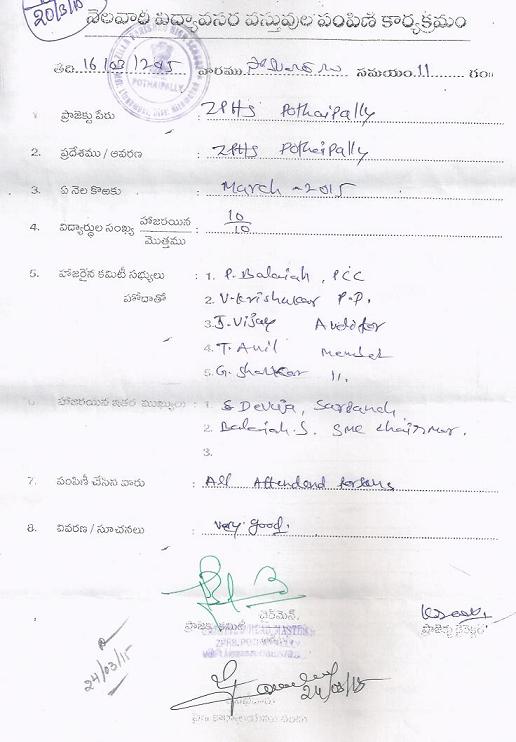 20/3/15
నెలవారి విద్యావసర వస్తువుల పంపిణి కార్యక్రమం
తేది 16/03/2015 వారము సోమవారం సమయం 11 గం॥
POTHAIPALLY
1. ప్రాజెక్టు పేరు : ZPHS Pothaipally
2. ప్రదేశము / ఆవరణ : ZPHS Pothaipally
3. ఏ నెల కొఱకు : March - 2015
4. విద్యార్థుల సంఖ్య హాజరయిన / మొత్తము : 10/10
5. హాజరైన కమిటీ సభ్యులు : 1. P. Balaiah, PCC
హోదాతో 2. V. Krishakar P.P.
3. J. Vijay Auditor
4. T. Anil Member
5. G. Shankar 11.
6. హాజరయిన ఇతర ముఖ్యులు : 1. Devuja, Sarpanch
2. Balaiah. S. SMC Chairman.
3.
7. పంపిణీ చేసిన వారు : All Attendend
8. వివరణ / సూచనలు : very good.
ఛైర్మెన్,
ప్రాజెక్టు కమిటీ
HEAD MASTER
ZPHS. POTHAIPALLY
24/03/15
24/03/15